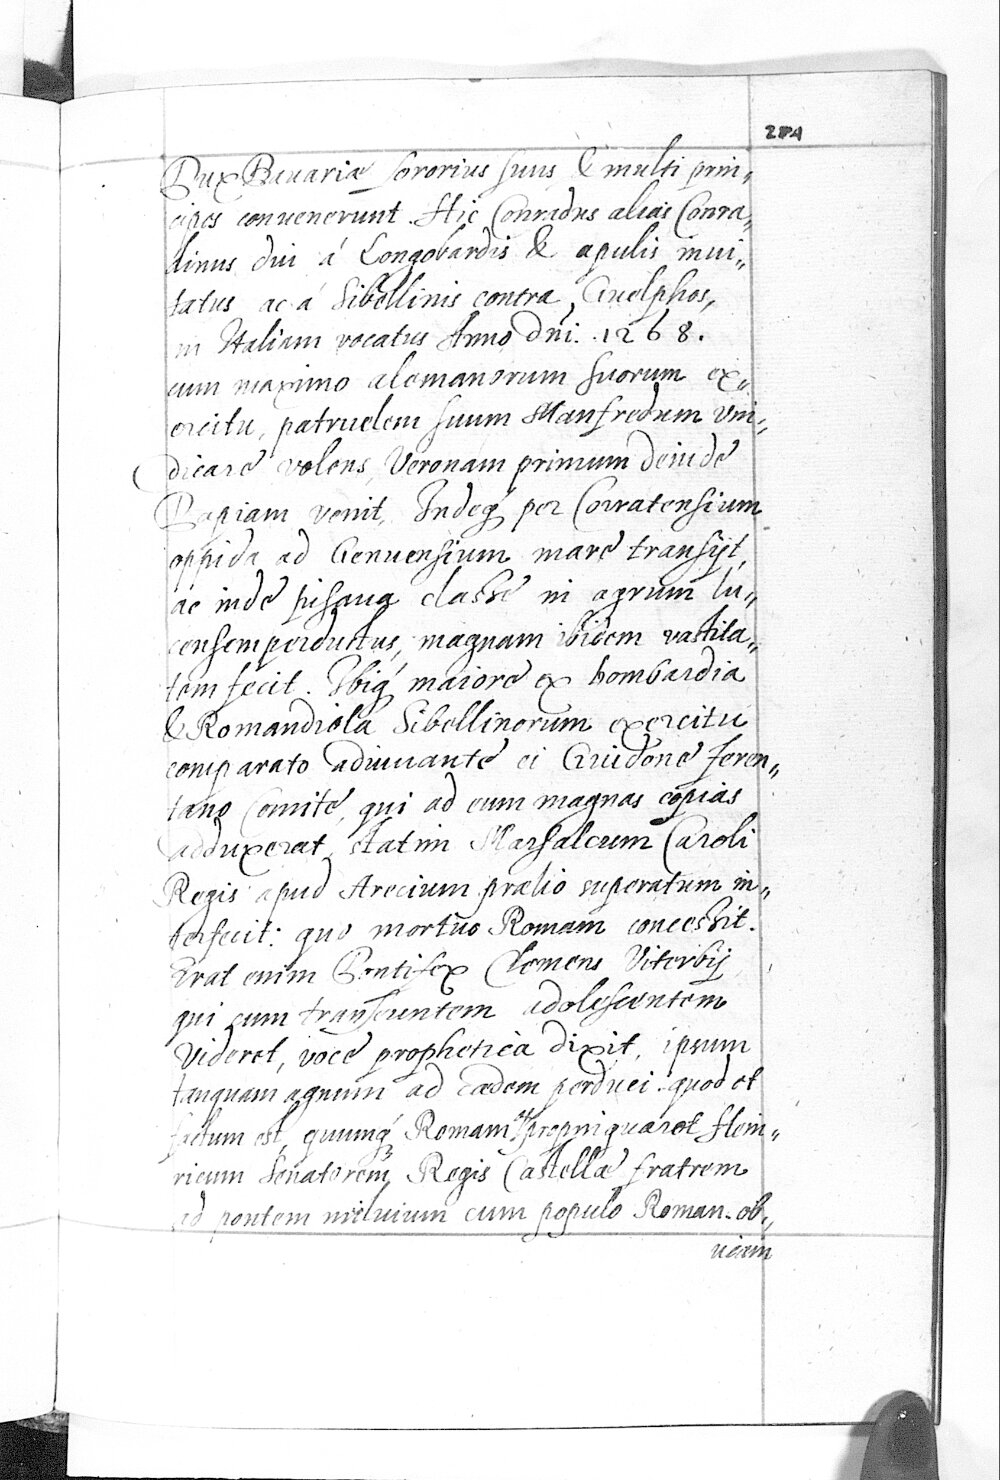 284
Dux Bauariæ sororius suus & multi prin„
cipes conuenerunt. Hic Conradus alias Conra„
dinus diu á Longobardis & apulis inui„
tatus ac á Gibellinis contra Guelphos,
in Italiam vocatus Anno dni. 1268.
cum maximo alemanorum suorum ex„
ercitu, patruelem suum Manfredum vin„
dicare volens, Veronam primum deinde
Papiam venit, Indeq́ per Corratensium
oppida ad Genuensium mare transijt,
ac inde pisana classe in agrum lu„
censem perductus, magnam ibidem vastita„
tem fecit. Ibiq́ maiore ex Lombardia
& Romandiola Gibellinorum exercitu
comparato adiuuante ei Guidone feren„
tano Comite, qui ad eum magnas copias
adduxerat, statim Marsalcum Caroli
Regis apud Arecium prælio superatum in„
terfecit: quo mortuo Romam concessit.
Erat enim Pontifex Clemens Viterbij
qui cum transeuntem adolescentem
videret, voce prophetica dixit, ipsum
tanquam agnum ad cædem perduci. quod et
factum est, quumq́ Romam propinquaret Hen„
ricum Senatorem Regis Castellæ fratrem
ad pontem miluium cum populo Roman. ob„
uiam